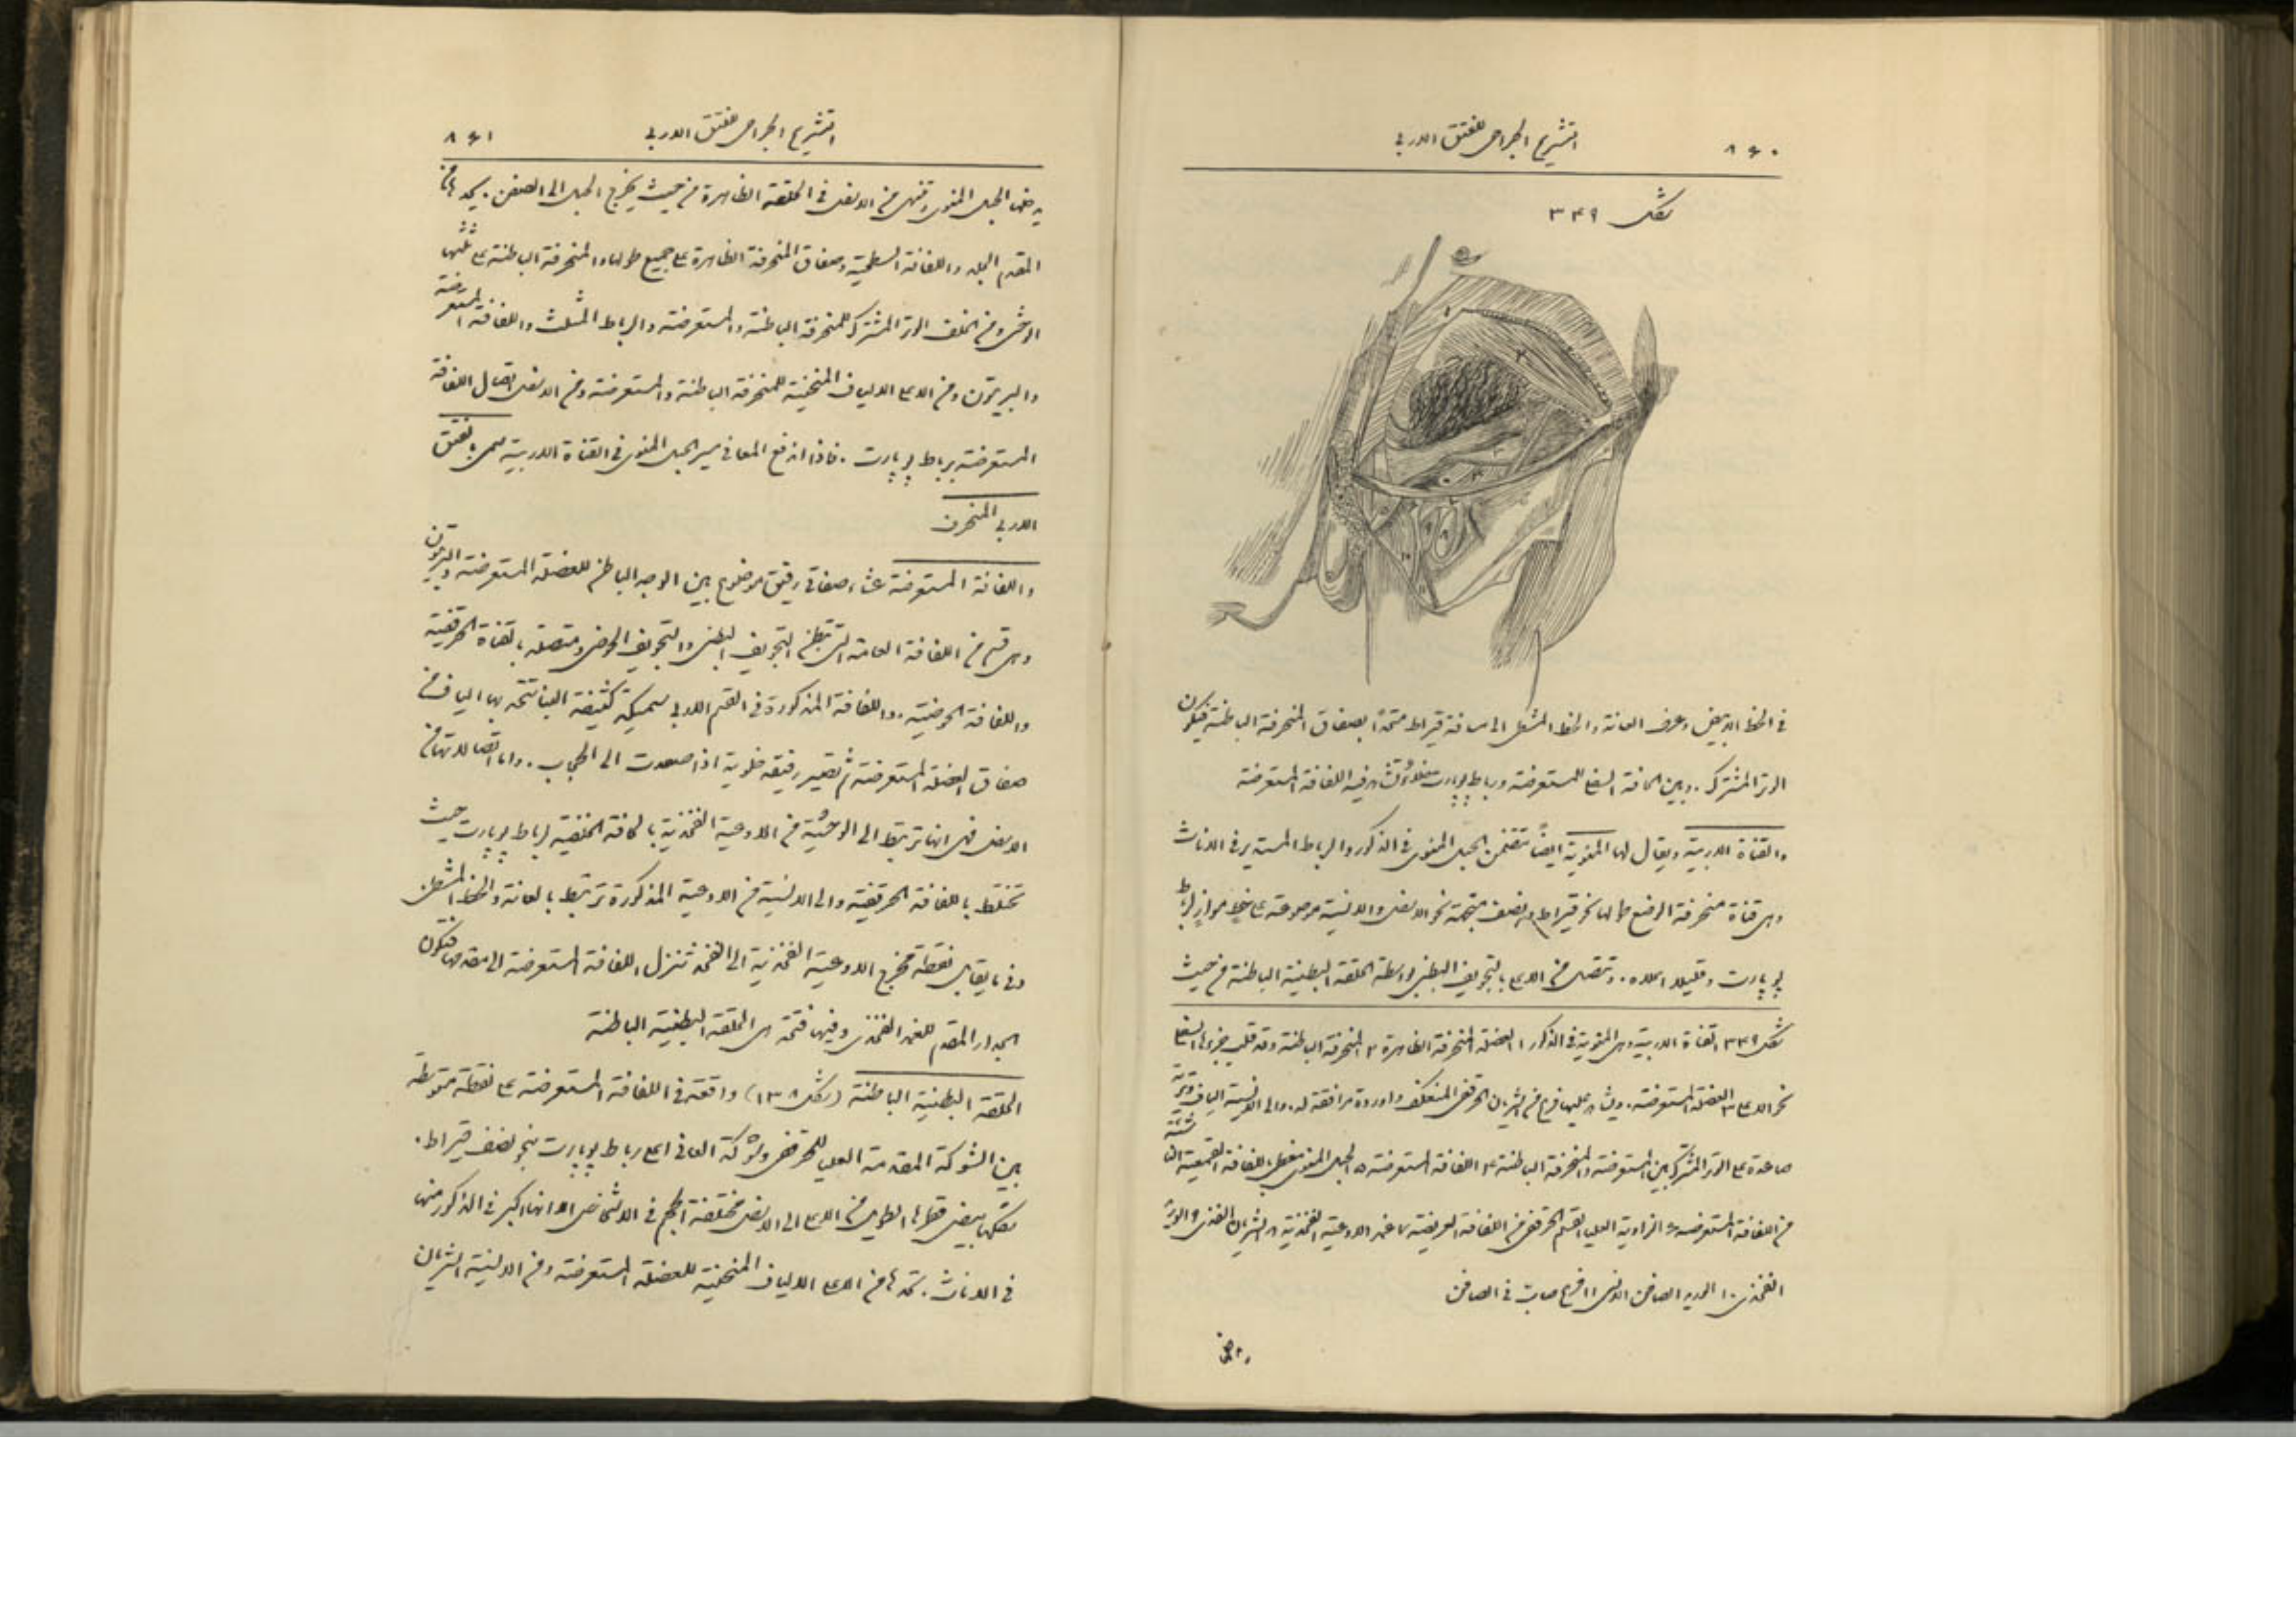 التشريح الجراحي للفتق الاربي
٨٦٠
شكل ٣٤٩
في الخط الابيض وعرف العانة والخط المشطي الى مسافة قيراط متحدًا بصفاق المنحرفة الباطنة فيكون
الوتر المشترك . وبين الحافة السفلى للمستعرضة ورباط پوپارت خلاء تشاهد فيه اللفافة المستعرضة
والقناة الاربية ويقال لها المنوية ايضًا تتضمن الحبل المنوي في الذكور والرباط المستدير في الاناث
وهي قناة منحرفة الوضع طولها نحو قيراط ونصف متجهة نحو الاسفل والانسية موضوعة على خط موازٍ لرباط
پوپارت وقليلا اعلاه . وتتصل من الاعلى بالتجويف البطني بواسطة الحلقة البطنية الباطنة من حيث
شكل ٣٤٩ القناة الاربية وهي المنوية في الذكور ١ العضلة المنحرفة الظاهرة ٢ المنحرفة الباطنة وقد قلب جزءها السفلي
نحو الاعلى ٣ العضلة المستعرضة . ويشاهد عليها فرع من الشريان الحرقفي المنعكف واوردة مرافقة له . والى الانسية الياف وترية
صاعدة على الوتر المشترك بين المستعرضة والمنحرفة الباطنة ٤ اللفافة المستعرضة ٥ الحبل المنوي مغطى باللفافة القمعية الناشئة
من اللفافة المستعرضة ٦ الزاوية العليا للقسم الحرقفي من اللفافة العريضة ٧ غمد الاوعية الفخذية ٨ الشريان الفخذي ٩ الوريد
الفخذي ١٠ الوريد الصافن الانسي ١١ فرع صاب في الصافن
التشريح الجراحي للفتق الاربي
٨٦١
يدخلها الحبل المنوي وتنتهي من الاسفل في الحلقة الظاهرة من حيث يخرج الحبل الى الصفن . يحدها من
المقدم الجلد واللفافة السطحية وصفاق المنحرفة الظاهرة على جميع طولها والمنحرفة الباطنة على ثلثها
الوحشي ومن الخلف الوتر المشترك للمنحرفة الباطنة والمستعرضة والرباط المثلث واللفافة المستعرضة
والبريتون ومن الاعلى الالياف المنحنية للمنحرفة الباطنة والمستعرضة ومن الاسفل اتصال اللفافة
المستعرضة برباط پوپارت . فاذا اندفع المعا في سير الحبل المنوي في القناة الاربية سمي بالفتق
الاربي المنحرف
واللفافة المستعرضة غشاء صفاقي رقيق موضوع بين الوجه الباطن للعضلة المستعرضة والبريتون
وهي قسم من اللفافة العامة التي تبطن التجويف البطني والتجويف الحوضي ومتصلة باللفافة الحرقفية
واللفافة الحوضية . واللفافة المذكورة في القسم الاربي سميكة كثيفة البناء تتحد بها الياف من
صفاق العضلة المستعرضة ثم تصير رقيقة خلوية اذا صعدت الى الحجاب . واما اتصالاتها من
الاسفل فهي انها ترتبط الى الوحشية من الاوعية الفخذية بالحافة الخلفية لرباط پوپارت حيث
تختلط باللفافة الحرقفية والى الانسية من الاوعية المذكورة ترتبط بالعانة والخط المشطي
وفي ما يقابل نقطة مخرج الاوعية الفخذية الى الفخذ تنزل اللفافة المستعرضة الى مقدمها فتكون
الجدار المقدم للغمد الفخذي وفيها فتحة هي الحلقة البطنية الباطنة
الحلقة البطنية الباطنة (شكل ١٣٨) واقعة في اللفافة المستعرضة على نقطة متوسطة
بين الشوكة المقدمة العليا للحرقفي وشوكة العانة اعلى رباط پوپارت بنحو نصف قيراط .
شكلها بيضي قطرها الطويل من الاعلى الى الاسفل مختلفة الحجم في الاشخاص الا انها اكبر في الذكور منها
في الاناث . تحدها من الاعلى الالياف المنحنية للعضلة المستعرضة ومن الانسية الشريان